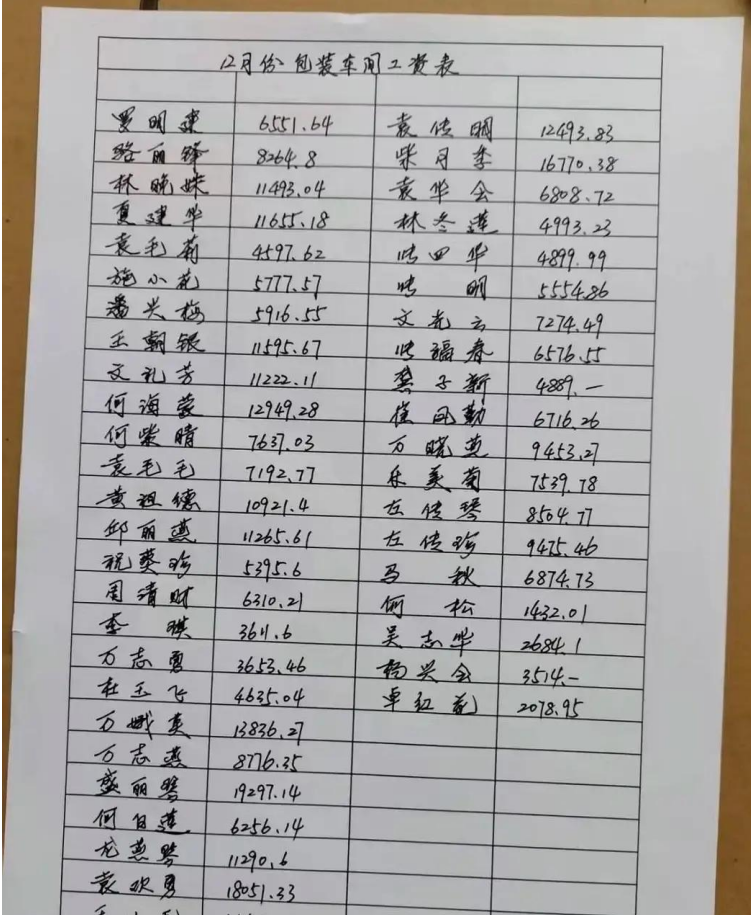 12月份包装车间工资表
罗明建 6551.64 袁传明 12493.83
骆丽锋 8264.8 柴月季 16770.38
林晚妹 11493.04 袁华会 6808.72
夏建华 11655.18 林冬莲 4993.23
袁毛菊 4597.62 四华 4899.99
施小花 5777.57 明 5554.86
潘兴梅 5916.55 文光云 7274.49
王朝银 11595.67 福春 6576.55
文礼芳 11222.11 龚子新 4889.—
何海蓉 12949.28 凤勤 6716.26
何紫晴 7637.03 万晓燕 9453.27
袁毛毛 7192.77 乐美菊 7539.78
黄祖德 10921.4 左传琴 8504.77
邱丽燕 11265.61 左传珍 9475.46
祝葵珍 5395.6 马秋 6874.73
周清财 6310.21 何松 1432.01
李琪 3611.6 吴志华 2684.1
万志勇 3653.46 杨兴会 3514.—
杜玉飞 4635.04 卓红花 2078.95
万英 13836.27
万志燕 8776.35
盛丽琴 19297.14
何自莲 6256.14
龙燕琴 11290.6
袁欢勇 18051.33